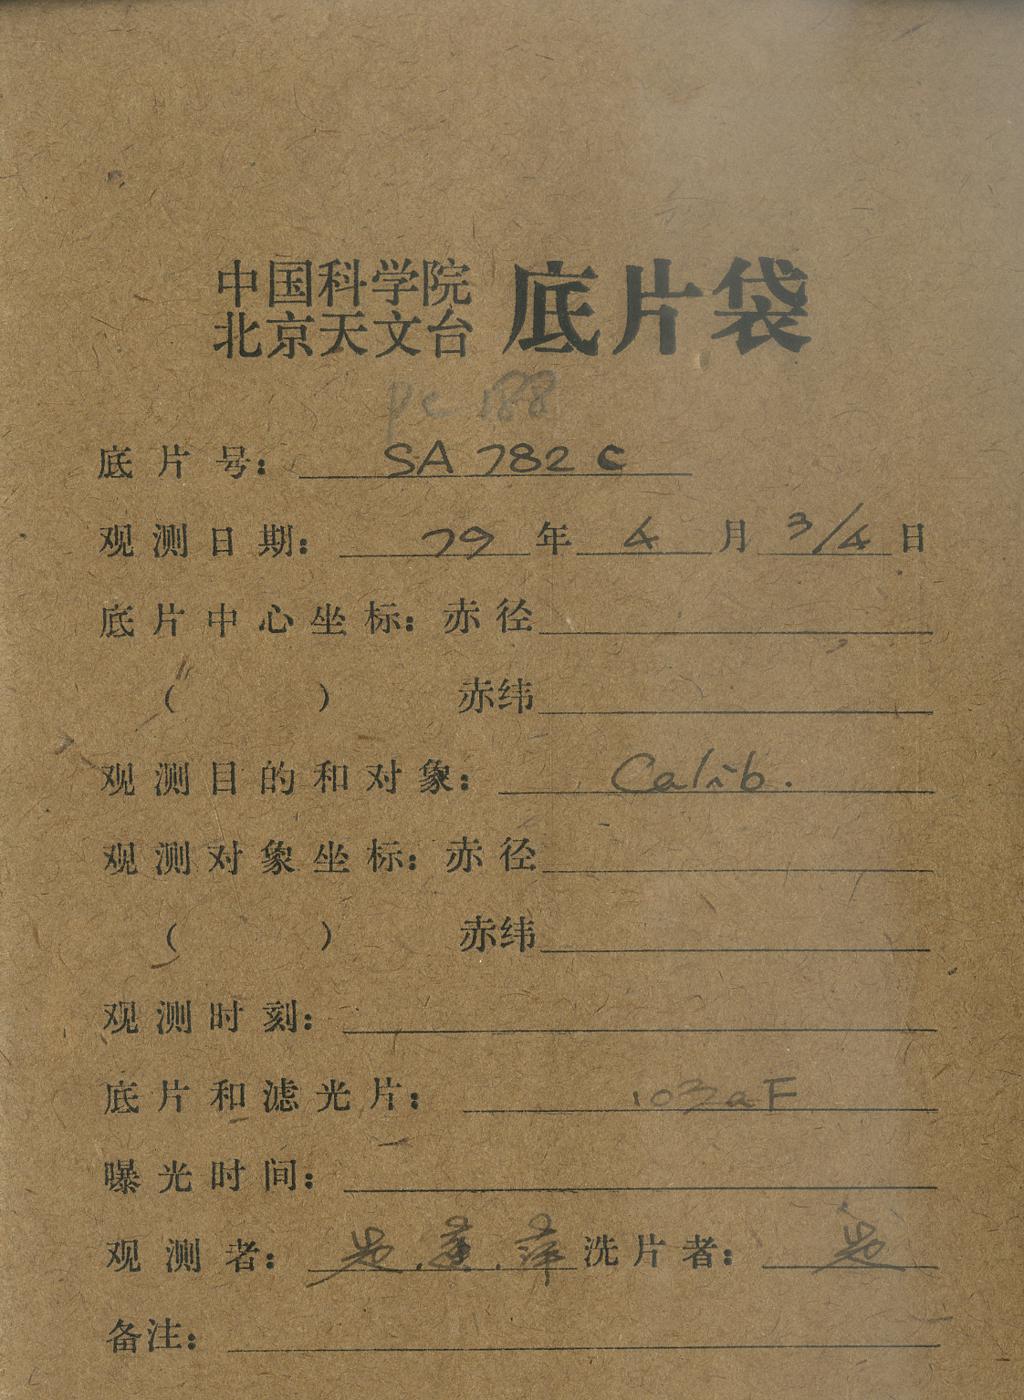 中国科学院
北京天文台 底片袋
pc 188
底片号: SA 782 C
观测日期: 79 年 4 月 3/4 日
底片中心坐标: 赤径
( ) 赤纬
观测目的和对象: Calib.
观测对象坐标: 赤径
( ) 赤纬
观测时刻:
底片和滤光片: 103aF
曝光时间:
观测者: 洗片者:
备注: